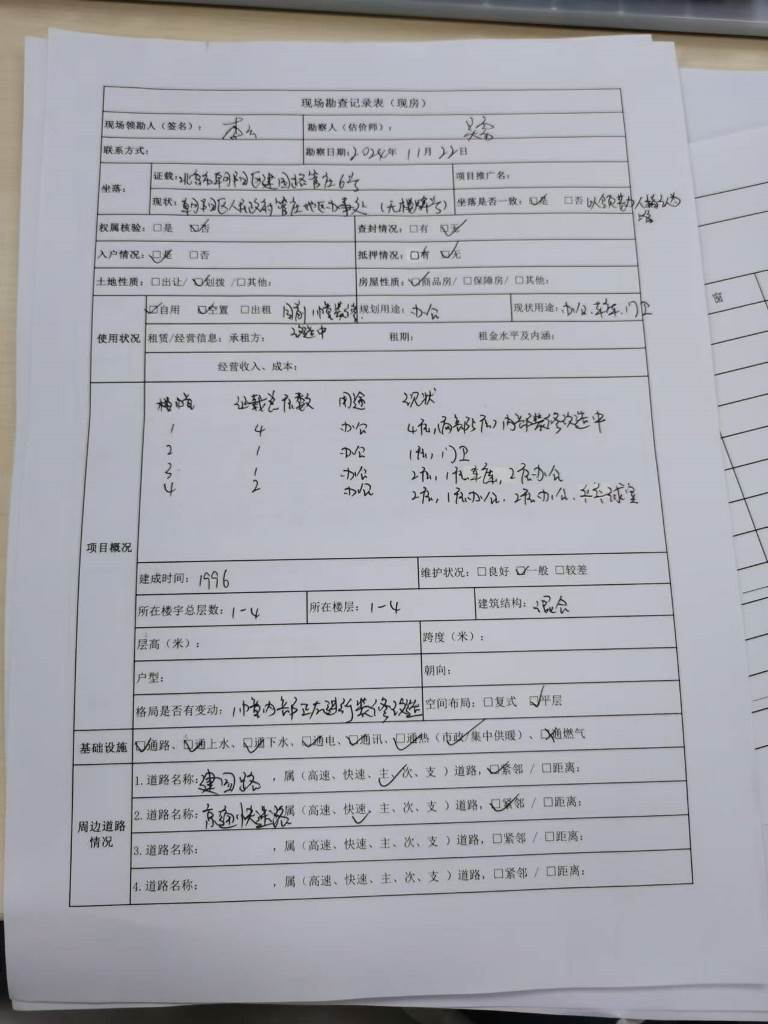 现场勘查记录表（现房）
现场领勘人（签名）： 勘察人（估价师）：
联系方式： 勘察日期：2024年 11月22日
坐落： 证载：北京市朝阳区建国路管庄6号 项目推广名：
现状：朝阳区人民政府管庄地区办事处（无楼牌号） 坐落是否一致：☑是 □否 以领勘人指认为准
权属核验：□是 ☑否 查封情况：□有 ☑无
入户情况：☑是 □否 抵押情况：□有 ☑无
土地性质：□出让/ ☑划拨 /□其他： 房屋性质：☑商品房/ □保障房/ □其他：
使用状况 ☑自用 ☑空置 □出租 目前1幢装修 规划用途：办公 现状用途：办公、车库、门卫
租赁/经营信息：承租方： 改造中 租期： 租金水平及内涵：
经营收入、成本：
项目概况
楼幢 证载总层数 用途 现状
1 4 办公 4层（局部5层）内部装修改造中
2 1 办公 1层，门卫
3 1 办公 2层，1层车库，2层办公
4 2 办公 2层，1层办公、2层办公、乒乓球室
建成时间：1996 维护状况：□良好 ☑一般 □较差
所在楼宇总层数：1-4 所在楼层：1-4 建筑结构：混合
层高（米）： 跨度（米）：
户型： 朝向：
格局是否有变动：1幢内部正在进行装修改造 空间布局：□复式 ☑平层
基础设施 ☑通路、☑通上水、☑通下水、☑通电、☑通讯、☑通热（市政/集中供暖）、☒通燃气
周边道路情况
1.道路名称：建国路 ，属（高速、快速、主✓、次、支 ）道路，☑紧邻 / □距离：
2.道路名称：京通快速路 ，属（高速、快速✓、主、次、支 ）道路，☑紧邻 / □距离：
3.道路名称： ，属（高速、快速、主、次、支 ）道路，□紧邻 / □距离：
4.道路名称： ，属（高速、快速、主、次、支 ）道路，□紧邻 / □距离：
窗